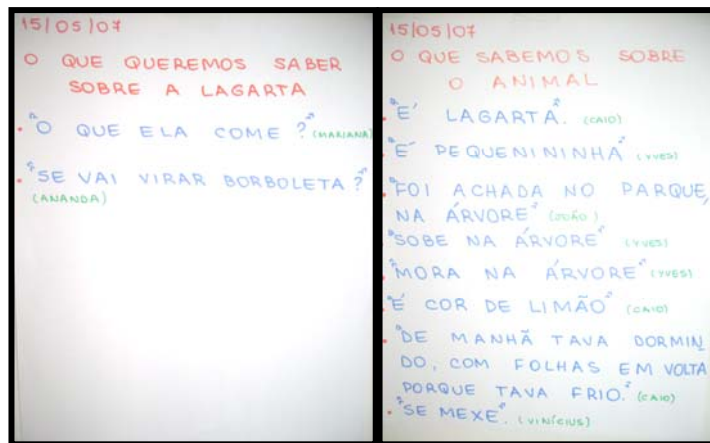 15/05/07
O QUE QUEREMOS SABER
SOBRE A LAGARTA
"O QUE ELA COME?" (MARIANA)
"SE VAI VIRAR BORBOLETA?"
(ANANDA)
15/05/07
O QUE SABEMOS SOBRE
O ANIMAL
"É LAGARTA". (CAIO)
"É PEQUENININHA" (YVES)
"FOI ACHADA NO PARQUE,
NA ÁRVORE" (JOÃO)
"SOBE NA ÁRVORE" (YVES)
"MORA NA ÁRVORE" (YVES)
"É COR DE LIMÃO" (CAIO)
"DE MANHÃ TAVA DORMIN
DO, COM FOLHAS EM VOLTA
PORQUE TAVA FRIO." (CAIO)
"SE MEXE". (VINÍCIUS)